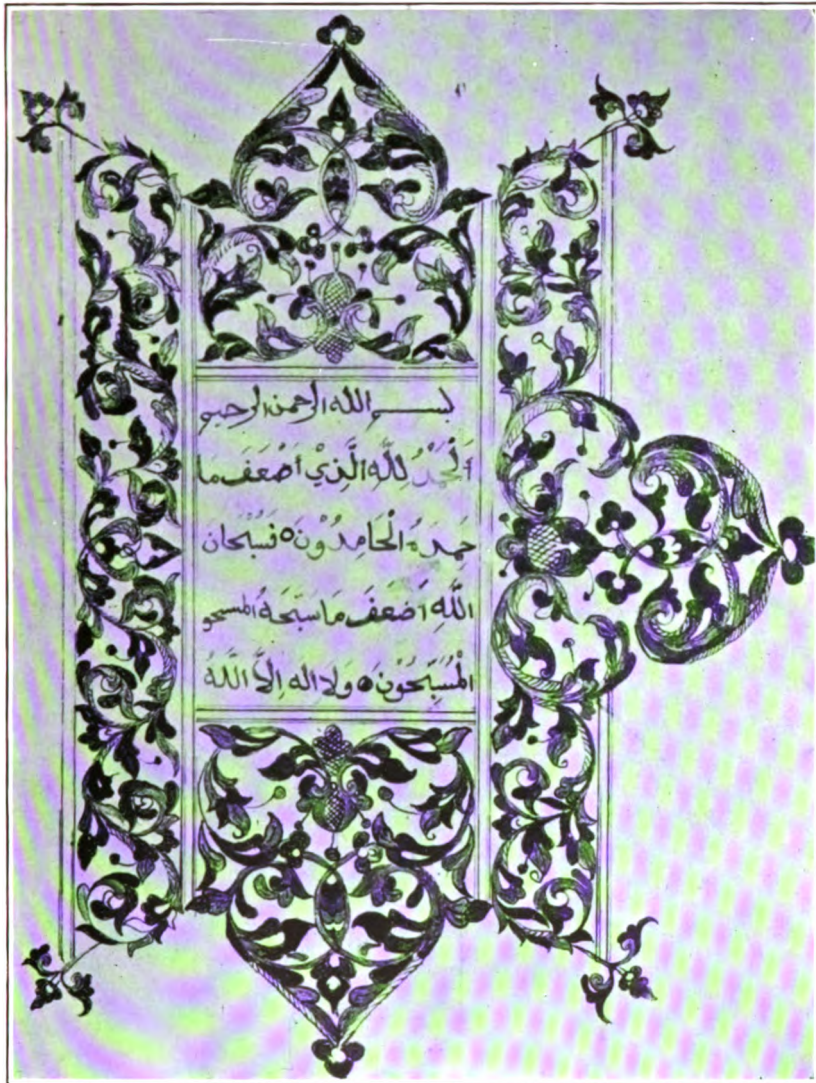 بسم الله الرحمن الرحيم
اَلْحَمْدُ لِلّٰهِ الَّذِيْ اَضْعَفَ مَا
حَمِدَهُ الْحَامِدُوْنَ ه فَسُبْحَانَ
اللّٰهِ اَضْعَفَ مَا سَبَّحَهُ المسبحو
الْمُسَبِّحُوْنَ ه وَلا اِلٰه اِلاَّ اللّٰهُ